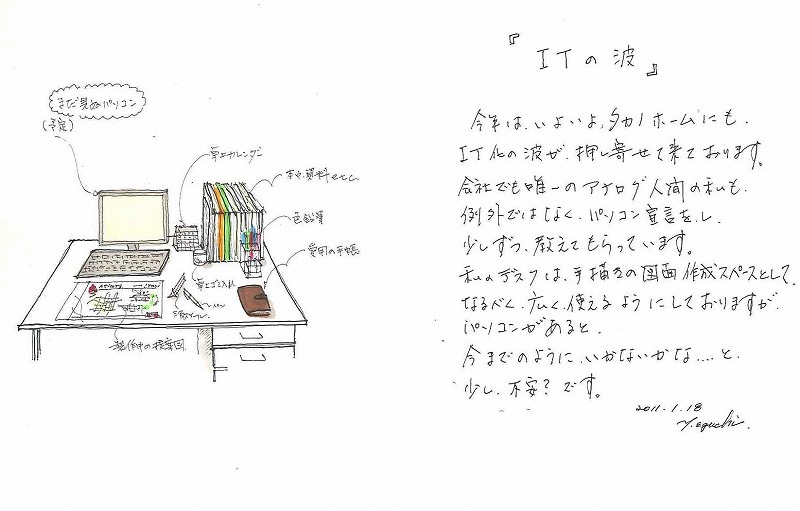 まだ見ぬパソコン
(予定)
卓上カレンダー
本や資料etc.
色鉛筆
愛用の手帳
卓上ゴミ入れ
ペン
三角スケール
製作中の提案図
『ITの波』
今年は、いよいよ、タカノホームにも、
IT化の波が、押し寄せて来ております。
会社でも唯一のアナログ人間の私も、
例外ではなく、パソコン宣言をし、
少しずつ、教えてもらっています。
私のデスクは、手描きの図面作成スペースとして、
なるべく、広く、使えるようにしておりますが、
パソコンがあると、
今までのように、いかないかな....と、
少し、不安?です。
2011.1.18
Y.eguchi.